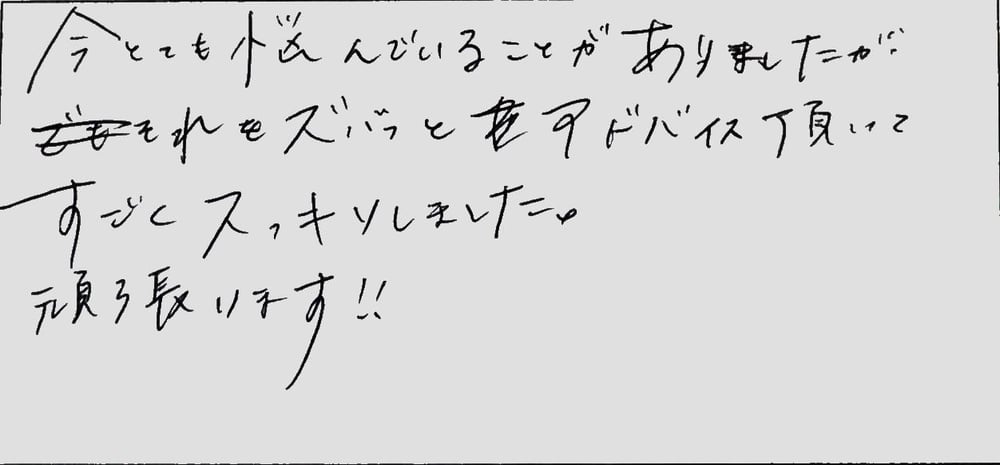 今とても悩んでいることがありましたが
それをズバっとアドバイス頂いて
すごくスッキリしました。
頑張ります!!